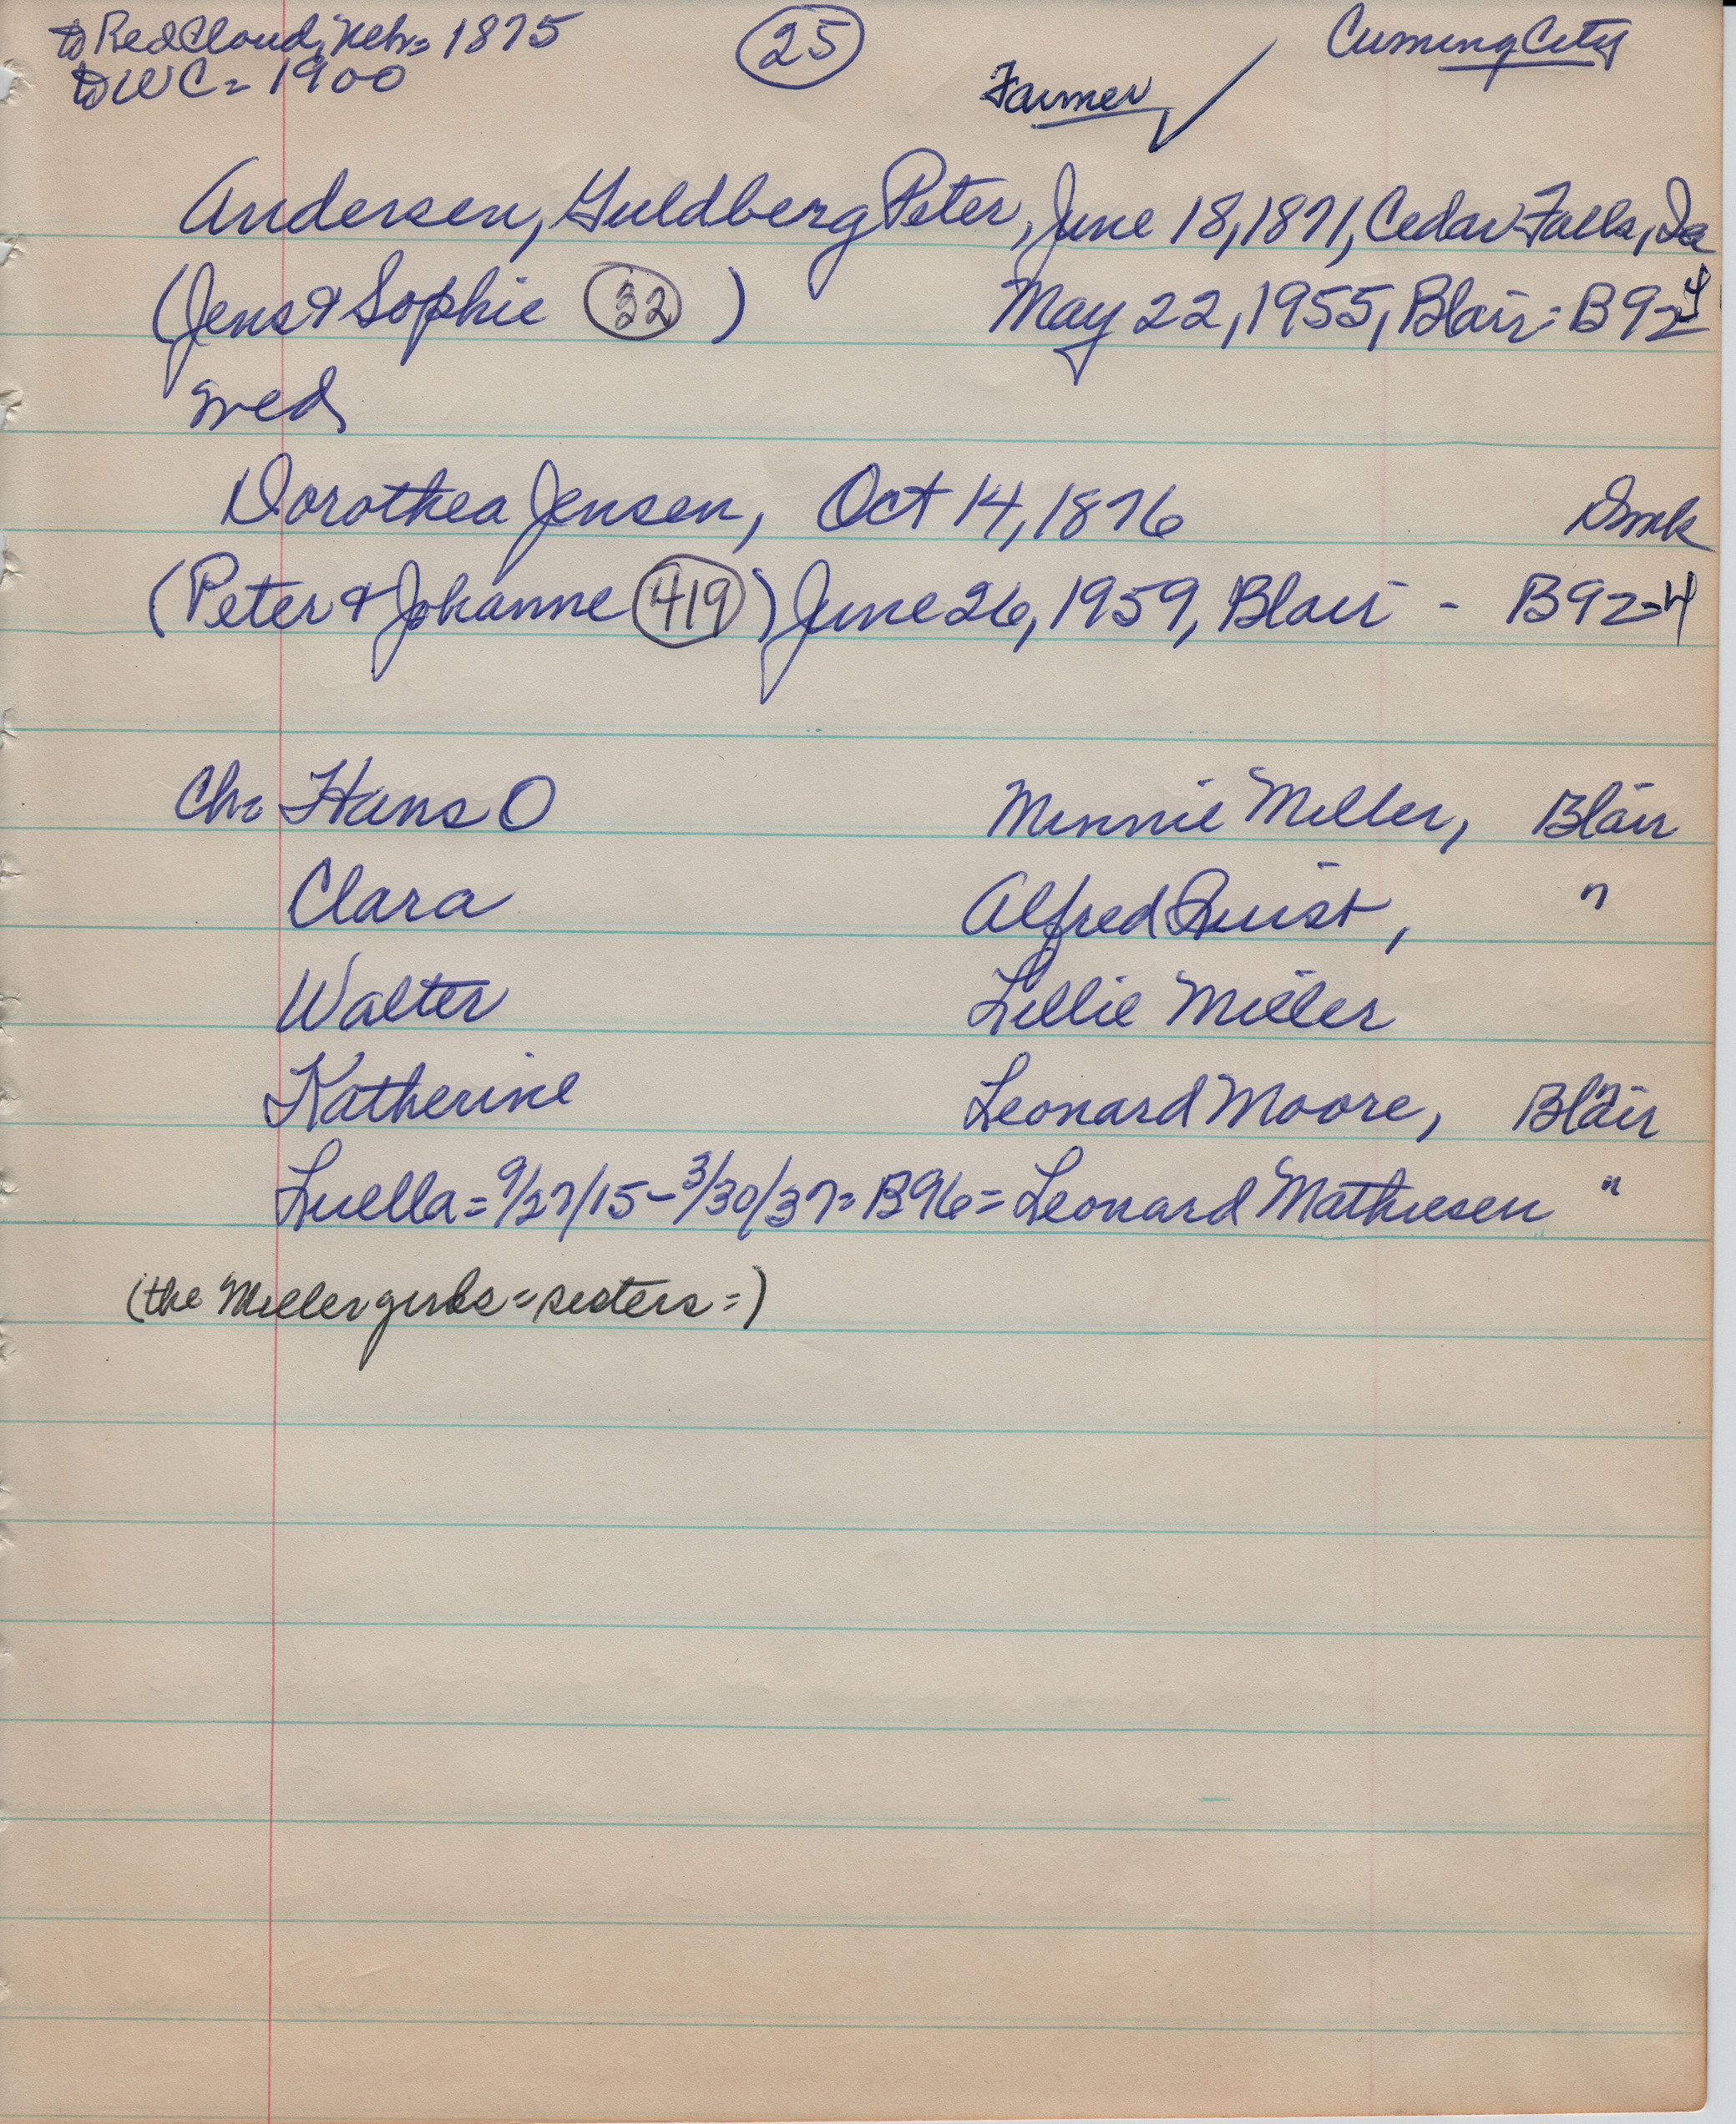 to Red Cloud, Neb = 1875
to WC = 1900
25
Farmer
Cuming City
Andersen, Guldberg Peter, June 18, 1871, Cedar Falls, Ia
(Jens & Sophie 32 ) May 22, 1955, Blair - B92-4
med
Dorothea Jensen, Oct 14, 1876 Dmk
(Peter & Johanne 419) June 26, 1959, Blair - B92-4
Ch: Hans O Minnie Miller, Blair
Clara Alfred Quist, "
Walter Lillie Miller
Katherine Leonard Moore, Blair
Luella = 9/27/15 - 3/30/37 = B96 = Leonard Mathiesen "
(the Miller girls = sisters =)